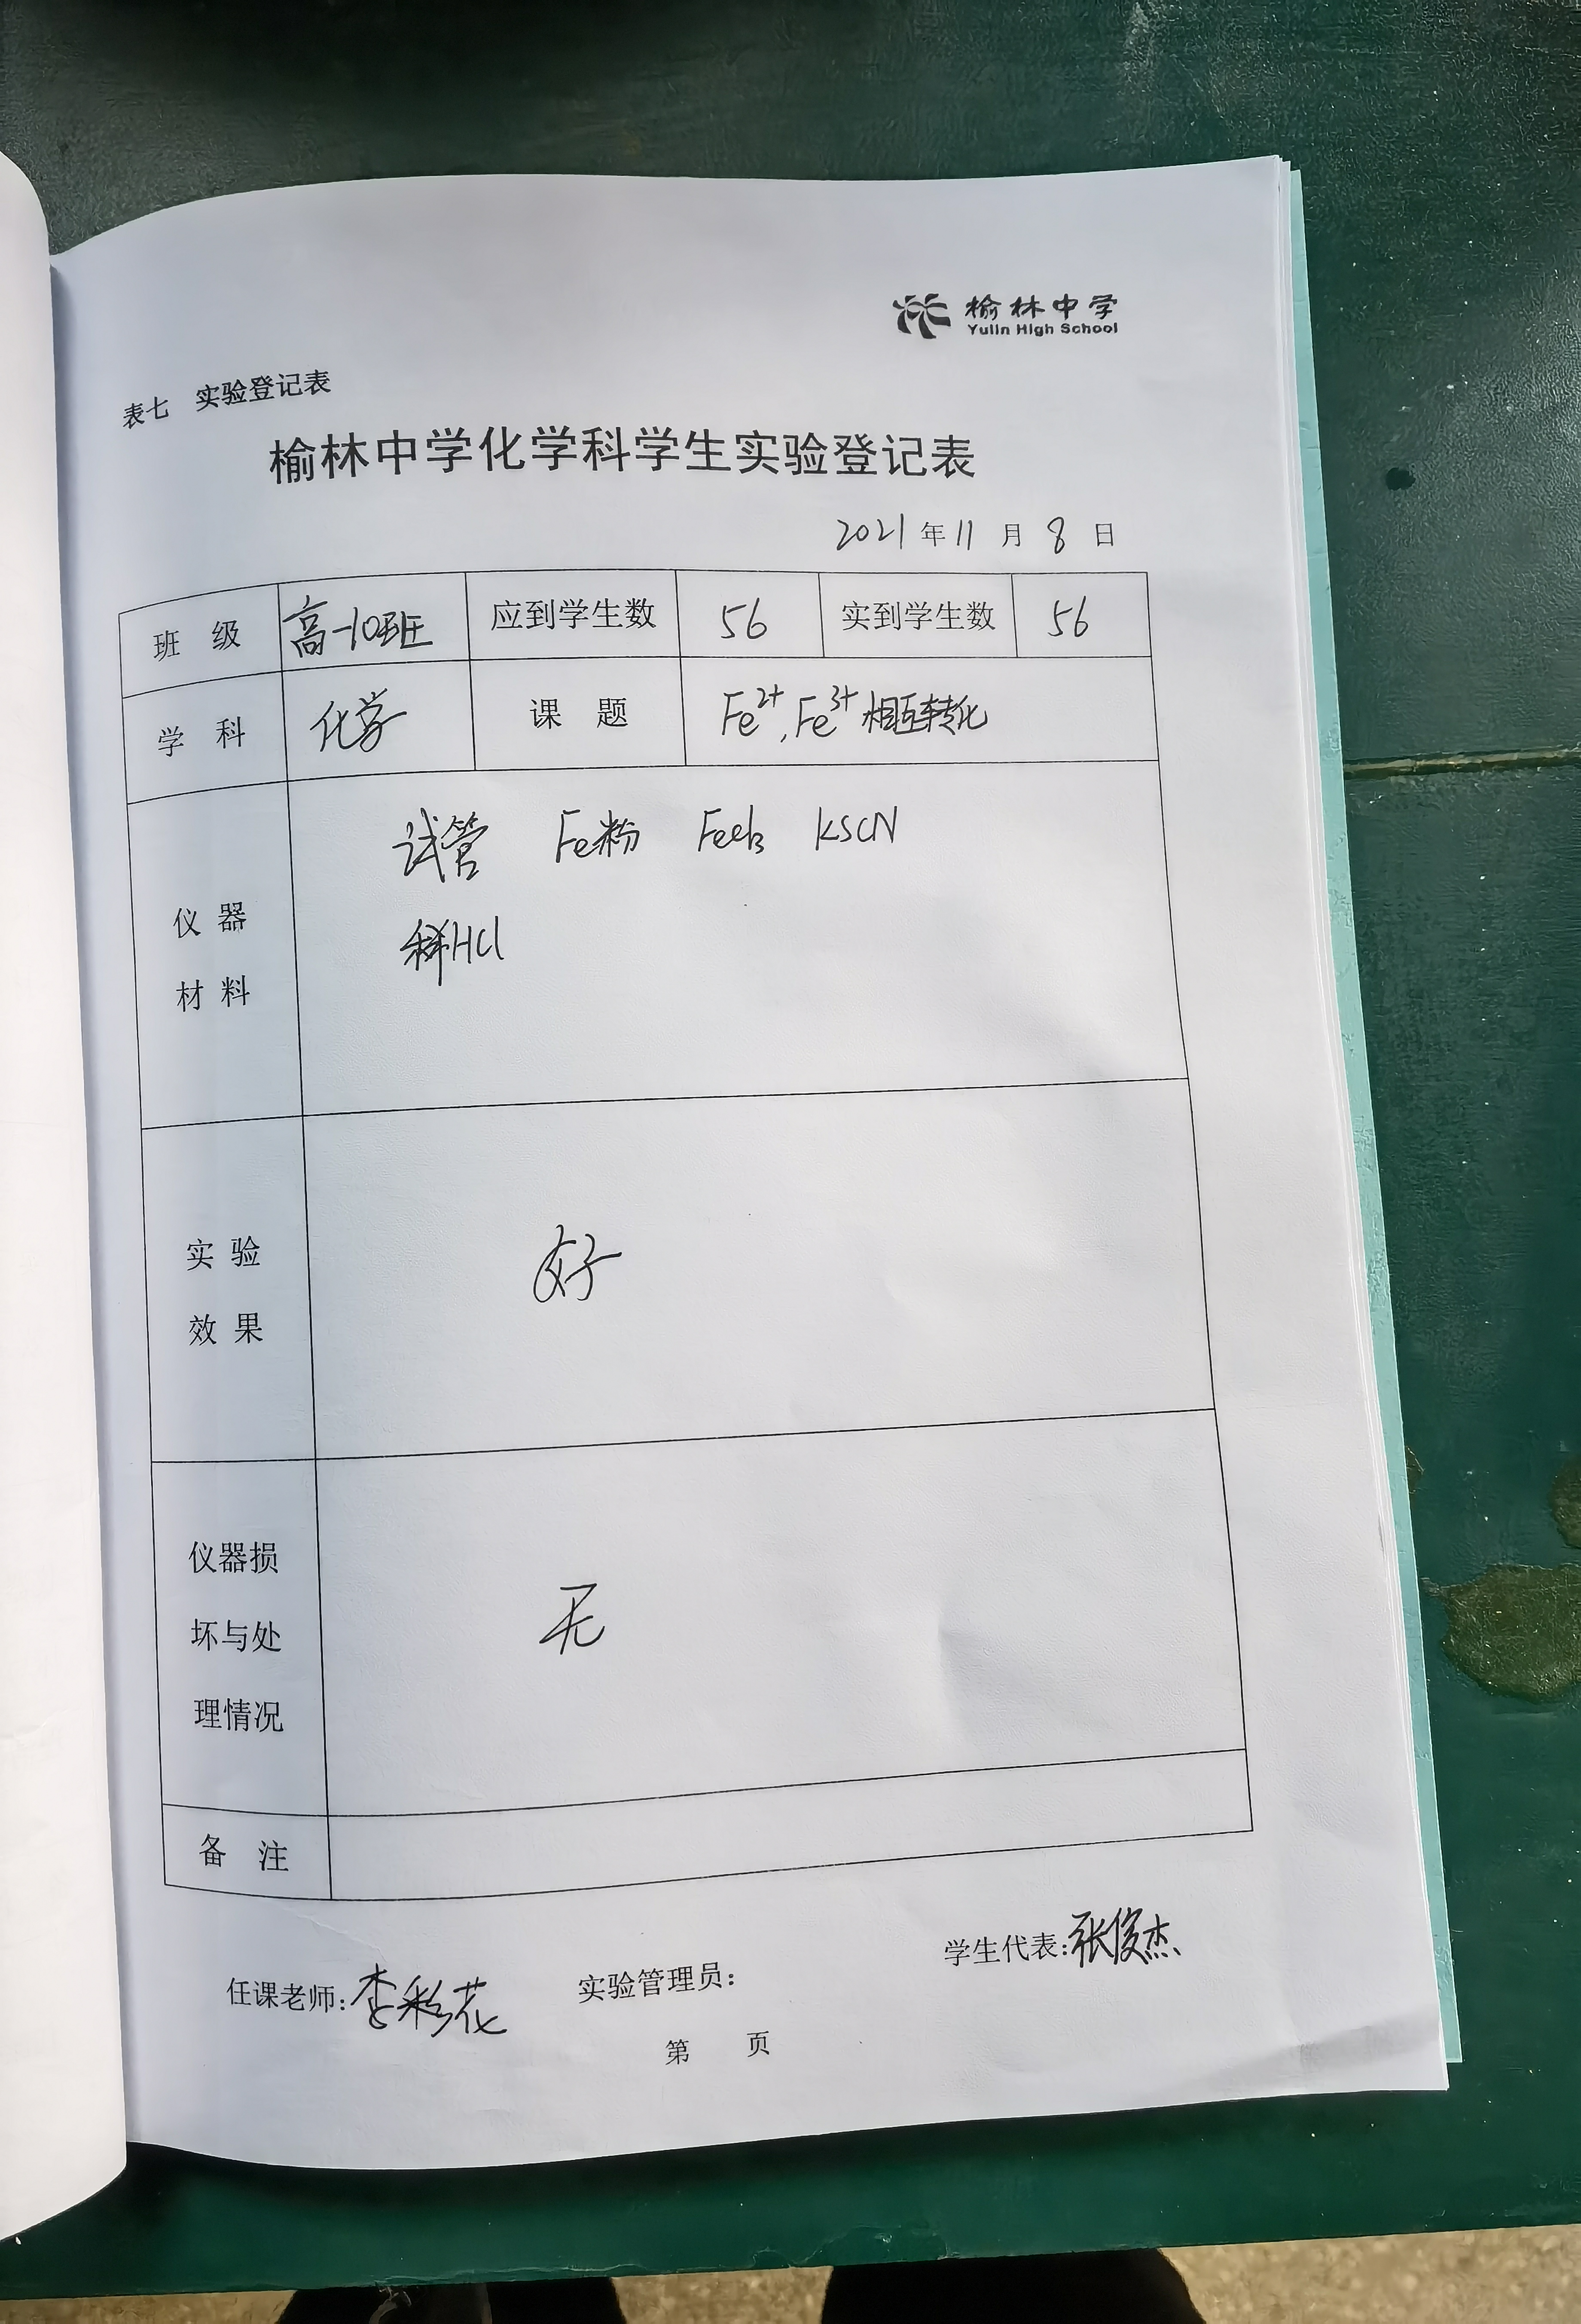 榆林中学
Yulin High School
表七 实验登记表
榆林中学化学科学生实验登记表
2021年11月8日
班级 高一10班 应到学生数 56 实到学生数 56
学科 化学 课题 Fe²⁺,Fe³⁺相互转化
仪器材料
试管 Fe粉 FeCl₃ KSCN
稀HCl
实验效果
好
仪器损坏与处理情况
无
备注
任课老师:李彩花 实验管理员: 学生代表:张俊杰
第 页